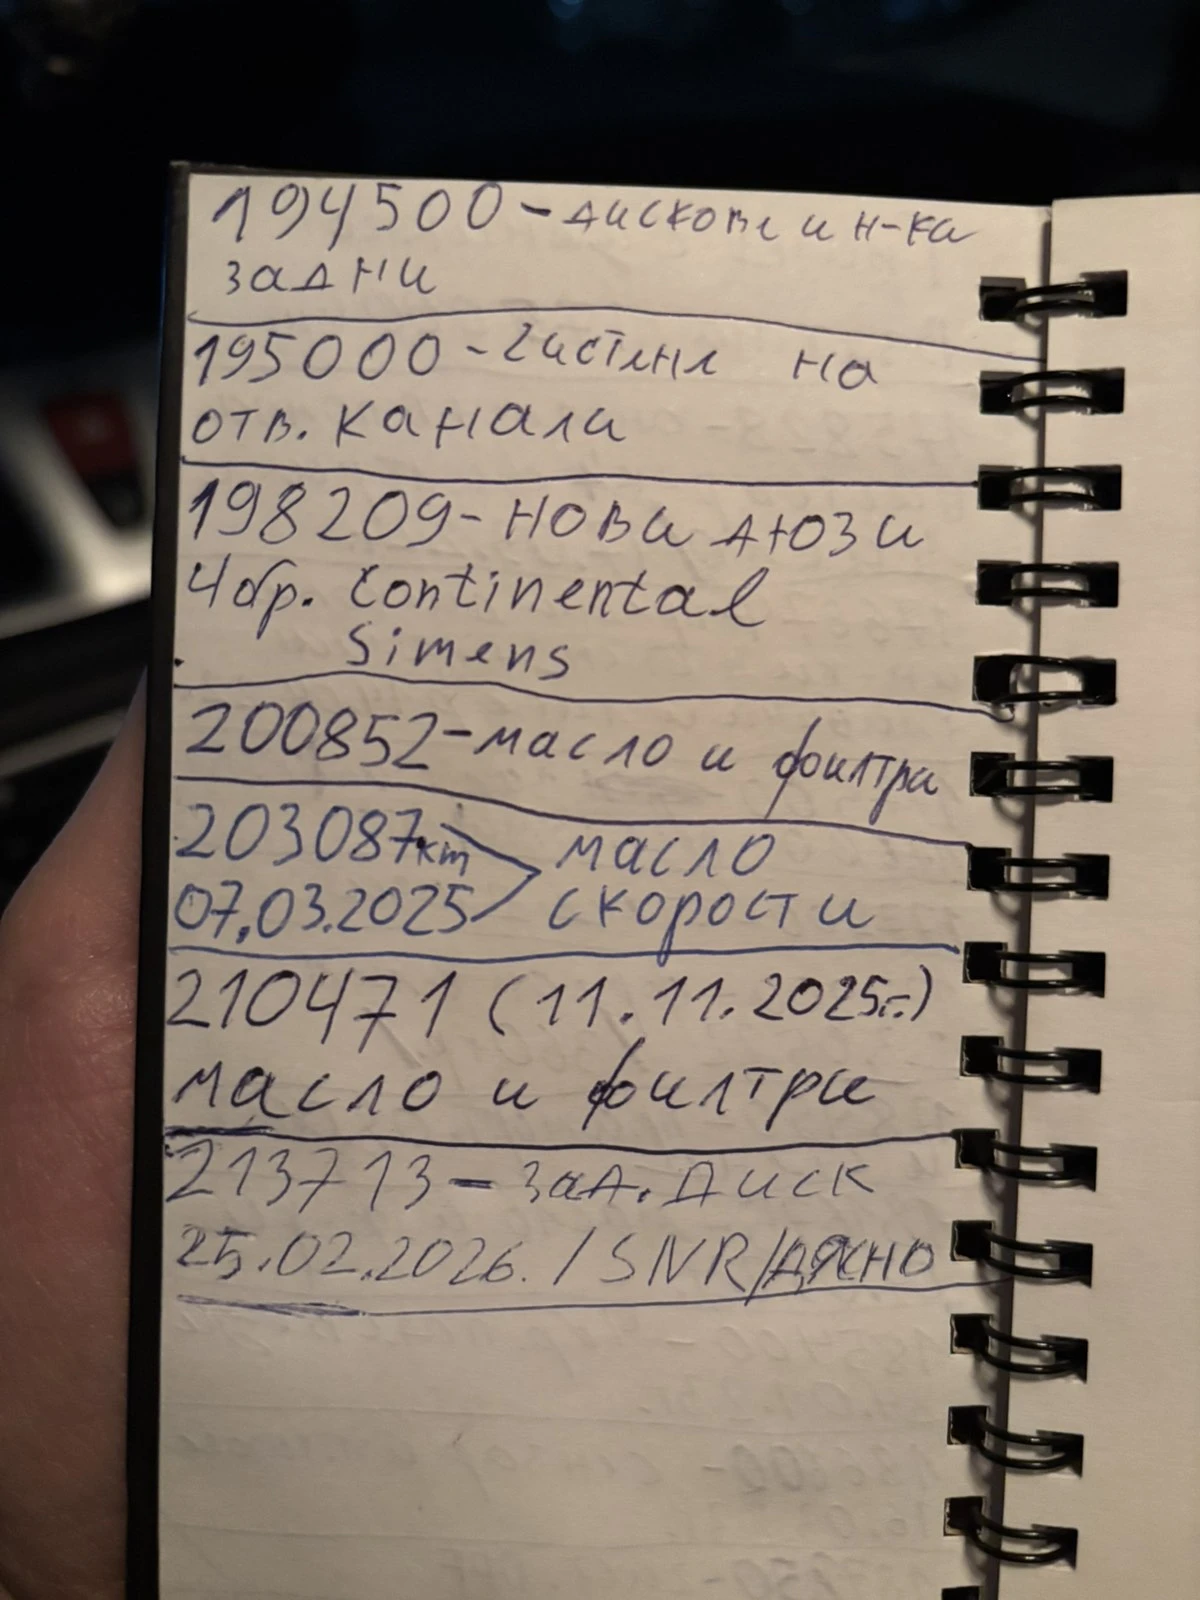 194500 - дискове и н-ка
задни
195000 - Чистене на
отв. канали
198209 - нови дюзи
4бр. Continental
Simens
200852 - масло и филтри
203087km масло
07.03.2025 скорости
210471 (11.11.2025г.)
масло и филтри
213713 - зад. диск
25.02.2026. / SNR/дясно